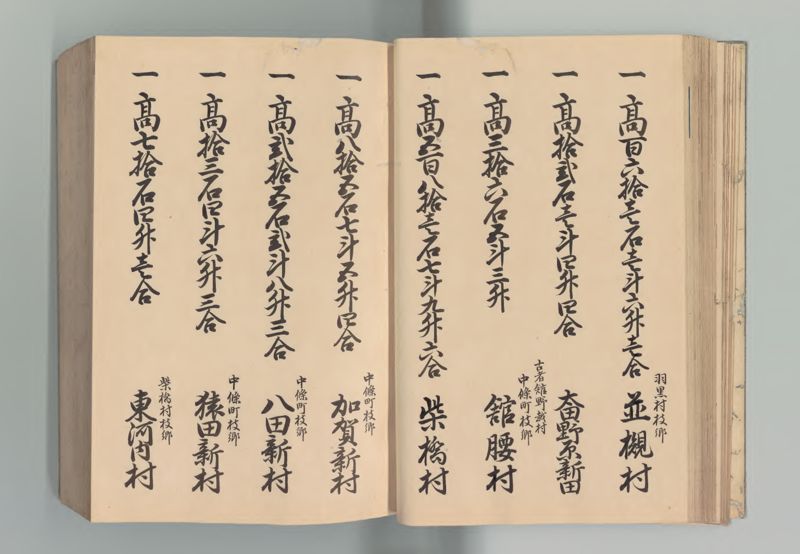 一 高百六拾壱石壱斗六升壱合
羽黒村枝郷
並槻村
一 高拾弐石壱斗四升四合
奋野原新田
一 高三拾六石五斗三升
古者舘野新村
中條町枝郷
舘腰村
一 高五百八拾壱石七斗九升六合
柴橋村
一 高八拾五石七斗五升四合
中條町枝郷
加賀新村
一 高弐拾五石弐斗八升三合
中條町枝郷
八田新村
一 高拾三石四斗六升三合
中條町枝郷
猿田新村
一 高七拾石四升壱合
柴橋村枝郷
東河内村